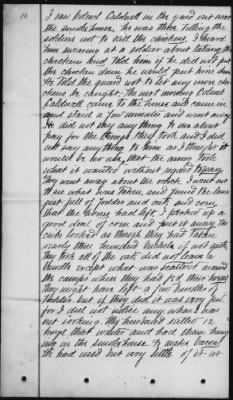 10
I saw Colonel Caldwell in the yard out near
the smoke house, he was there telling the
soldiers not to kill the chickens. I heard
him swearing at a soldier about taking the
chickens and told him if he did not put
the chicken down he would
He told the guard not to let any more chick
ens be caught. The next morning Colonel
Caldwell came to the house and came in
and staid a few minutes and went away.
He did not say any thing to me about
pay for the things they took and I did
not say any thing to him as I thought it
would be no use, that the army took
what it wanted without regard to pay.
They went away about one o'clock. I went out
to see what was taken, and found the lane
just full of fodder and oats and corn
that the horses had left. I picked up a
good deal of corn and put it away. The
cribs looked as though they had taken
nearly three hundred bushels if not quite.
They took all of the oats did not leave a
bundle except what was scattered around
the camps where they had fed their horses.
They might have left a few bundles of
fodder but if they did it was very few
for I did not notice any, when I was
out looking. My husband killed 12
hogs that winter and had them hang
ing in the smokehouse to make bacon
He had used but very little of it at